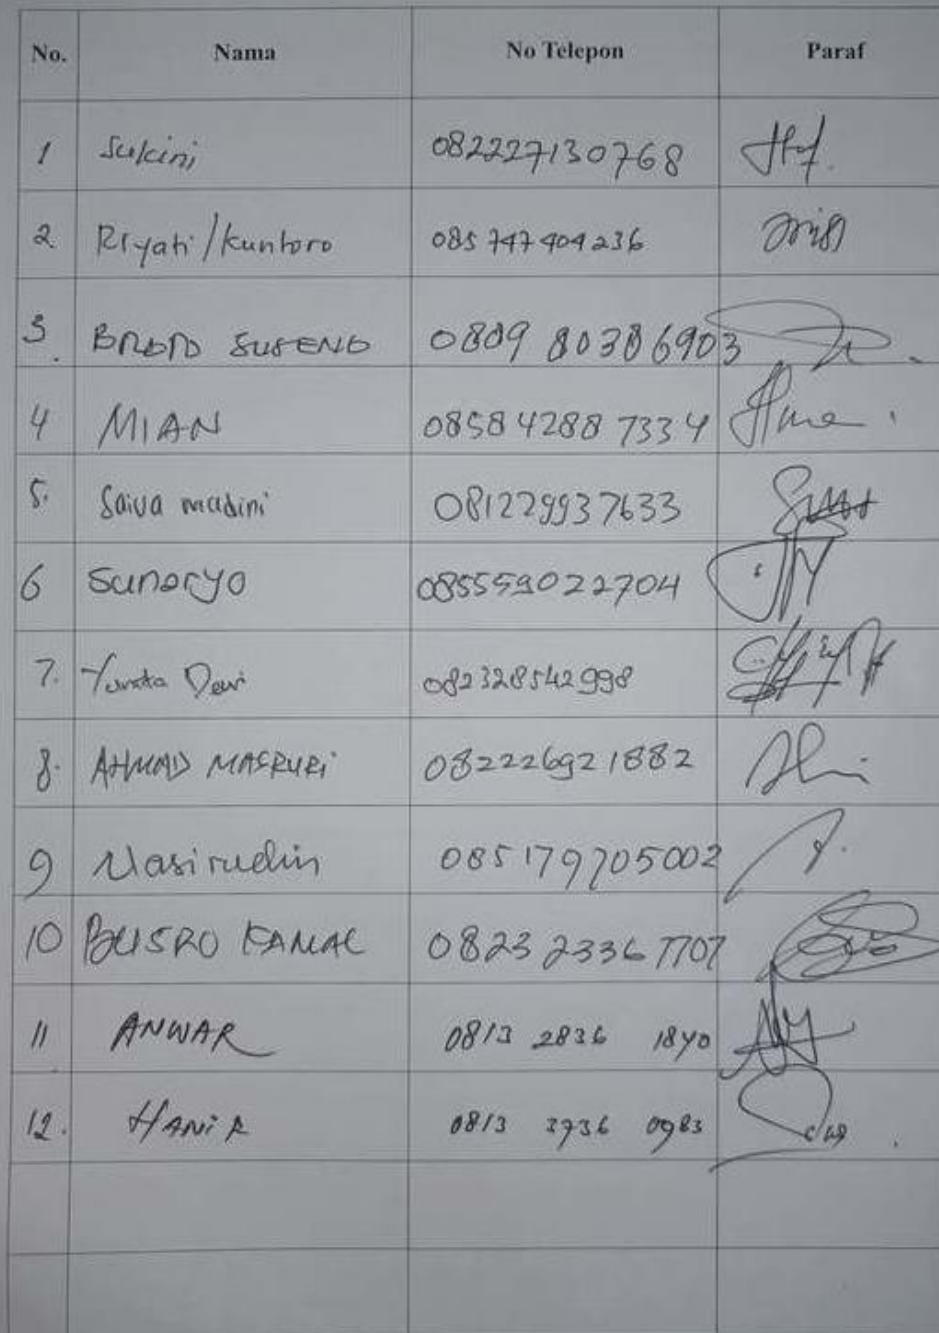 No. Nama No Telepon Paraf
1 Sukini 082227130768
2. Riyati/Kuntoro 085 747 404 236
3. SUSENO
4 MIAN 0858 4288 7334
5. Saiva madini 081229937633
6 Sunaryo 085559022704
7. Dewi 082328542998
8. AHMAD MASRURi 082226921882
9 Nasirudin 085179705002
10 BUSRO KAMAL 0823 2336 7707
11 ANWAR 0813 2836 1840
12. 0813 3736 0983